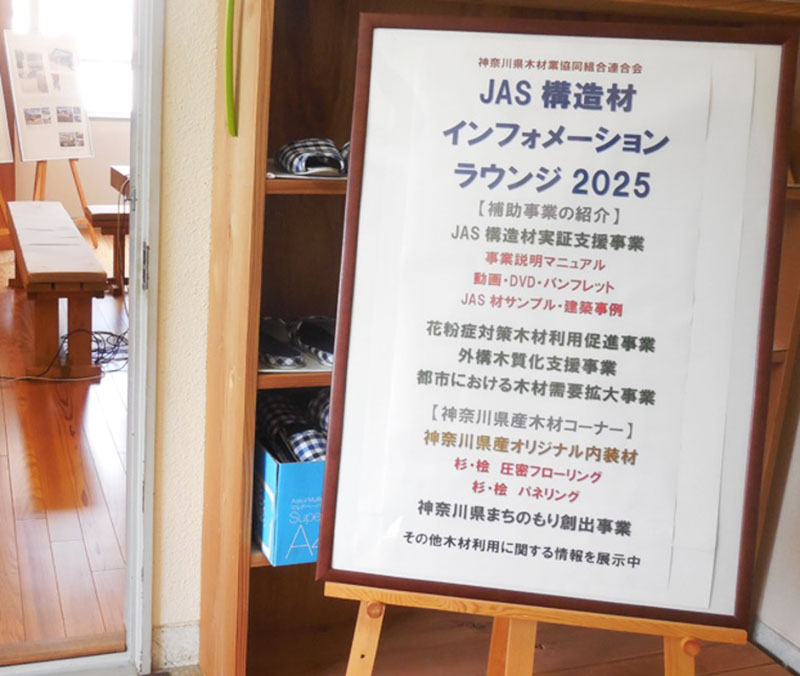 神奈川県木材業協同組合連合会
JAS 構造材
インフォメーション
ラウンジ 2025
【補助事業の紹介】
JAS 構造材実証支援事業
事業説明マニュアル
動画・DVD・パンフレット
JAS 材サンプル・建築事例
花粉症対策木材利用促進事業
外構木質化支援事業
都市における木材需要拡大事業
【神奈川県産木材コーナー】
神奈川県産オリジナル内装材
杉・桧 圧密フローリング
杉・桧 パネリング
神奈川県まちのもり創出事業
その他木材利用に関する情報を展示中
Super
A4